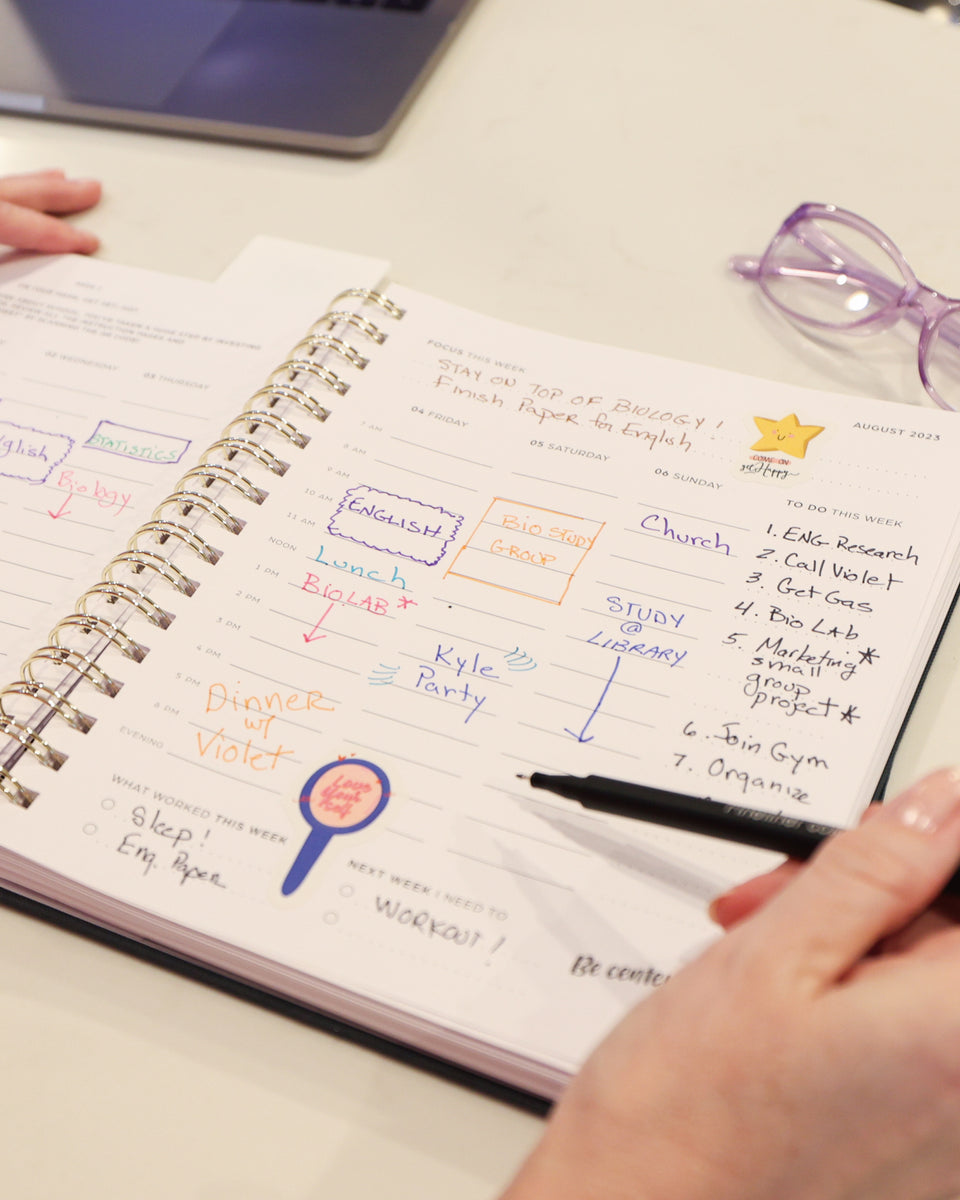 02 WEDNESDAY
03 THURSDAY
STATISTICS
Biology
FOCUS THIS WEEK
STAY ON TOP OF BIOLOGY!
Finish Paper for English
AUGUST 2023
COME ON
get Happy
04 FRIDAY
05 SATURDAY
06 SUNDAY
7 AM
8 AM
9 AM
10 AM
11 AM
NOON
1 PM
2 PM
3 PM
4 PM
5 PM
6 PM
EVENING
ENGLISH
Lunch
BIO LAB *
Dinner
w/
Violet
BIO STUDY
GROUP
Kyle
Party
Church
STUDY
@
LIBRARY
TO DO THIS WEEK
1. ENG Research
2. Call Violet
3. Get Gas
4. Bio Lab
5. Marketing *
small
group
project *
6. Join Gym
7. Organize
WHAT WORKED THIS WEEK
Sleep!
Eng. Paper
Love
Your
Self
NEXT WEEK I NEED TO
WORKOUT!
Be